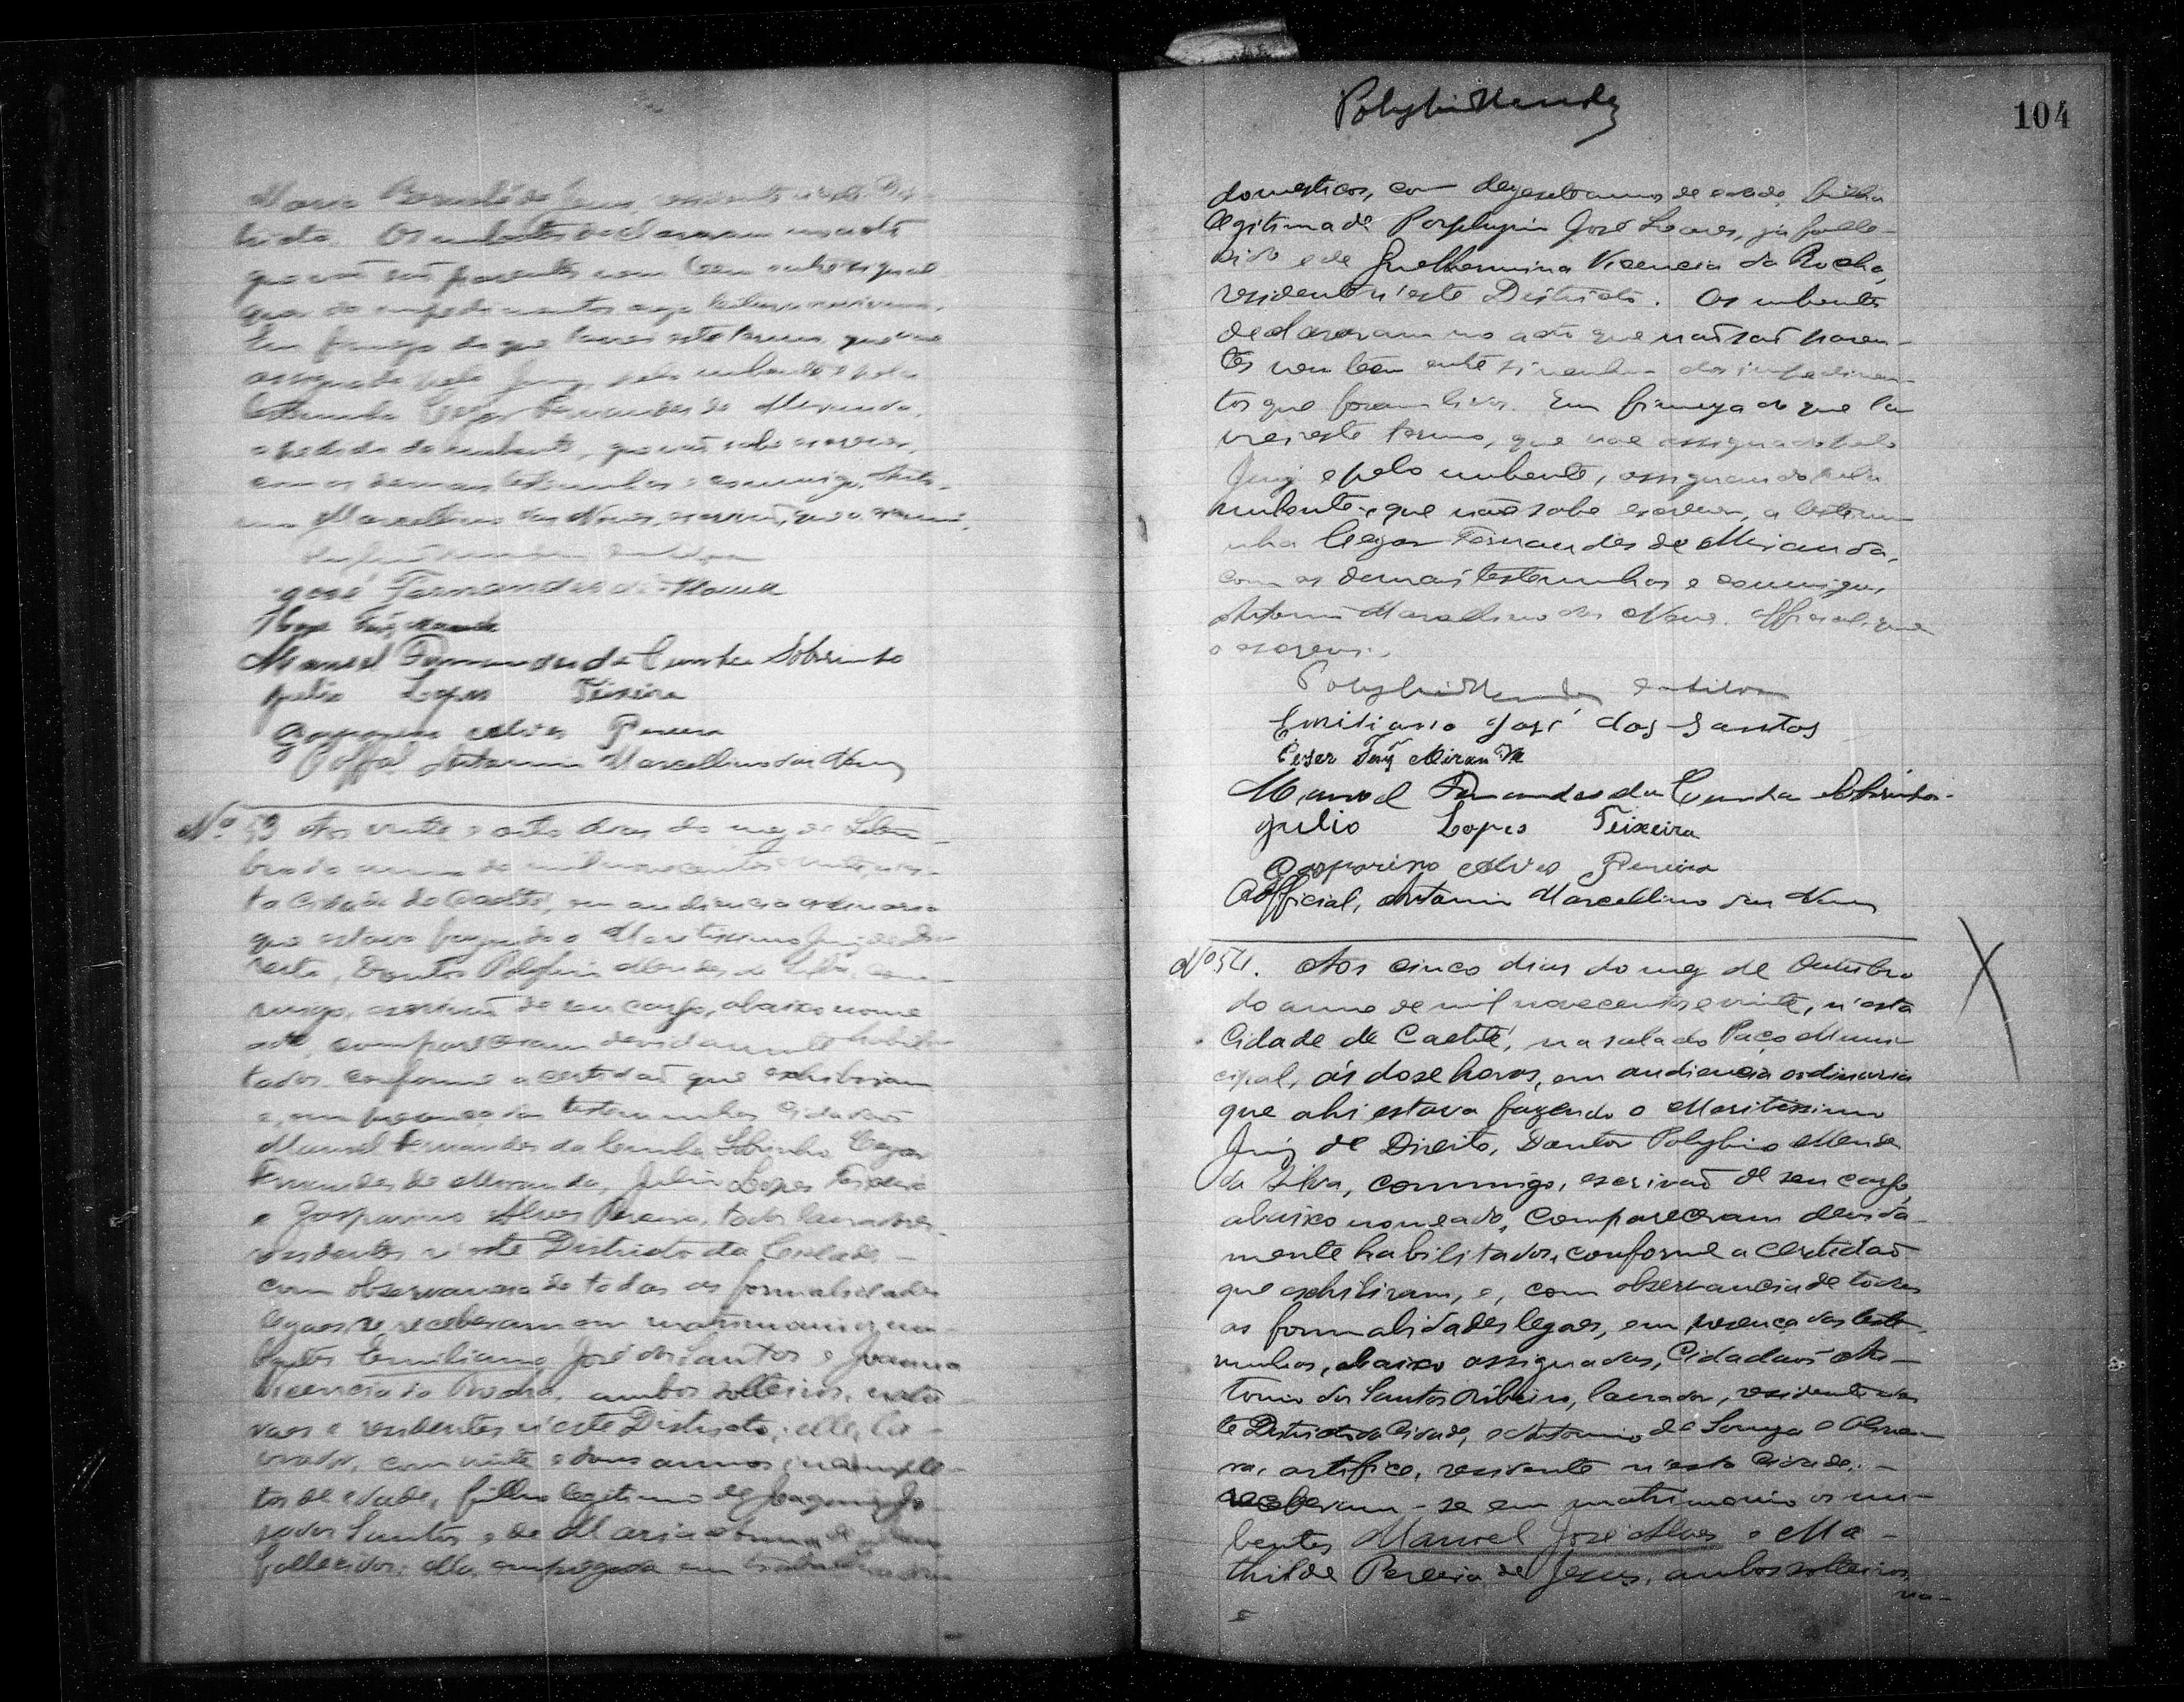 Maria
tricto. Os nubentes declararam no acto
que não são parentes nem tem entre si qual
quer do impedimento
Em firmeza do que lavrei este termo, que vae
assignado pelo Juiz, pelo nubente e pela
testemunha Cezar Fernandes de Miranda,
a pedido da nubente, que não sabe escrever,
com as demais testemunhas e commigo, Anto-
nio Marcellino das Neves, escrivão, que o escrevi.
José Fernandes de
Manoel Fernandes da Cunha Sobrinho
Julio Lopes Teixeira
Gasparino Alves Pereira
O Offal. Antonio Marcellino das Neves
Nº 53 Aos vinte e oito dias do mez de Setem-
bro do anno de mil novecentos e vinte, n'es-
ta Cidade de Caetité, em audiencia ordinaria
que estava fazendo o Meritissimo Juiz de Di-
reito, Doutor Polybio Mendes da Silva, com-
migo, escrivão de seu cargo, abaixo nome
ado, compareceram devidamente habili-
tados conforme a certidão que exhibiram
e, em presença das testemunhas Cidadãos
Manoel Fernandes da Cunha Sobrinho, Cezar
Fernandes de Miranda, Julio Lopes Teixeira
e Gasparino Alves Pereira, todos lavradores,
residentes n'este Districto da Cidade,
com observancia de todas as formalidades
legaes se receberam em matrimonio os nu-
bentes Emiliano José dos Santos e Joanna
Vicencia da Rocha, ambos solteiros, natu
raes e residentes n'este Districto; elle, la-
vrador, com vinte e dous annos incomple-
tos de edade, filho legitimo de Joaquim Jo
sé dos Santos e de Maria
fallecidos; ella, empregada em trabalhos
104
Polybio Mendes
domesticos, com dezesete annos de edade, filha
legitima de Porphyrio José Soares, já falle-
cido e de Guilhermina Vicencia da Rocha,
residente n'este Districto. Os nubentes
declararam no acto que não são paren-
tes nem tem entre si nenhum dos impedimen-
tos que foram lidos. Em firmeza do que la
vrei este termo, que vae assignado pelo
Juiz e pelo nubente, assignando pela
nubente, que não sabe escrever, a testemu
nha Cezar Fernandes de Miranda,
com as demais testemunhas e commigo,
Antonio Marcellino das Neves, Official, que
o escrevi.
Polybio Mendes da Silva
Emiliano José dos Santos
Cezar Ferz Miranda
Manoel Fernandes da Cunha Sobrinho
Julio Lopes Teixeira
Gasparino Alves Pereira
O Official, Antonio Marcellino das Neves
Nº 54. Aos cinco dias do mez de Outubro
do anno de mil novecentos e vinte, n'esta
Cidade de Caetité, na sala do Paço Muni-
cipal, ás dose horas, em audiencia ordinaria
que ahi estava fazendo o Meritissimo
Juiz de Direito, Doutor Polybio Mendes
da Silva, commigo, escrivão de seu cargo,
abaixo nomeado, compareceram devida-
mente habilitados, conforme a certidão
que exhibiram, e, com observancia de todas
as formalidades legaes, em presença das teste-
munhas, abaixo assignadas, Cidadãos An-
tonio dos Santos Ribeiro, lavrador, residente nes
te Districto da Cidade, e Antonio de Souza
artifice, residente n'esta Cidade,
receberam-se em matrimonio os nu-
bentes Manoel José Alves e Ma-
thilde Pereira de Jesus, ambos solteiros,
na-